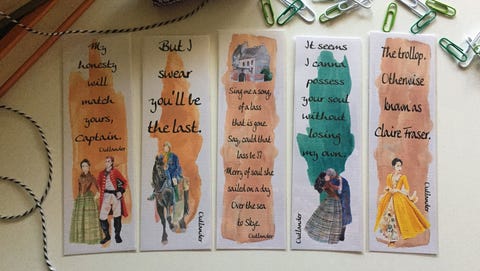 My
honesty
will
match
yours,
Captain.
Outlander
But I
swear
you'll be
the last.
Outlander
Sing me a song,
of a lass
that is gone.
Say, could that
lass be I?
Merry of soul she
sailed on a day
Over the sea
to Skye.
Outlander
It seems
I canna
possess
your soul
without
losing
my own.
Outlander
The trollop.
Otherwise
known as
Claire Fraser.
Outlander